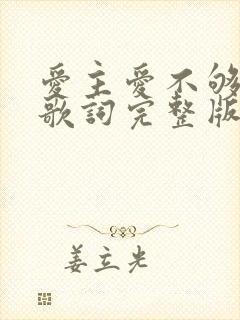 爱主爱不够
歌詞完整版
姜立光